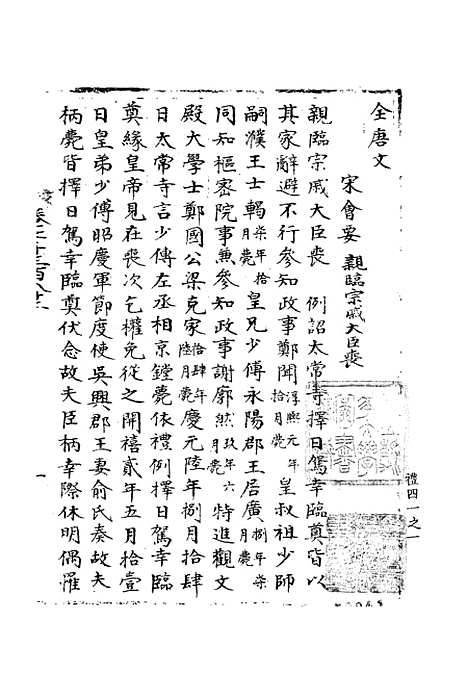 全唐文
宋會要 親臨宗戚大臣喪
親臨宗戚大臣喪 例詔太常寺擇日駕幸臨奠皆以
其家辭避不行參知政事鄭聞淳熙元年拾月薨皇叔祖少師
嗣濮王士輵柒年拾月薨皇兄少傅永陽郡王居廣捌年柒月薨
同知樞密院事兼參知政事謝廓然玖年六月薨特進觀文
殿大學士鄭國公梁克家拾肆年陸月薨慶元陸年捌月拾肆
日太常寺言少傅左丞相京鏜薨依禮例擇日駕幸臨
奠緣皇帝見在喪次乞權免從之開禧貳年五月拾壹
日皇弟少傅昭慶軍節度使吳興郡王妻俞氏奏故夫
柄薨背擇日駕幸臨奠伏念故夫臣柄幸際休明偶罹
禮四一之一
一